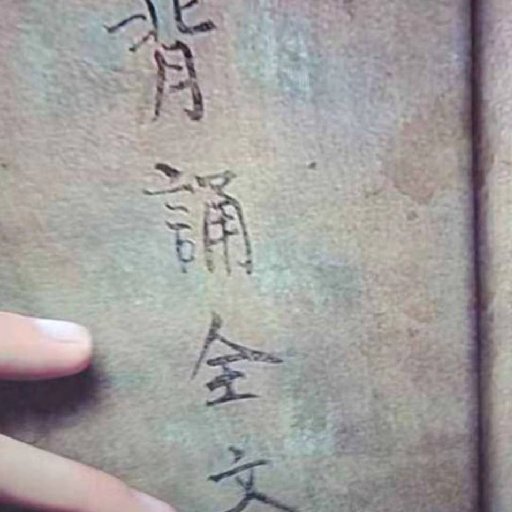 背誦全文